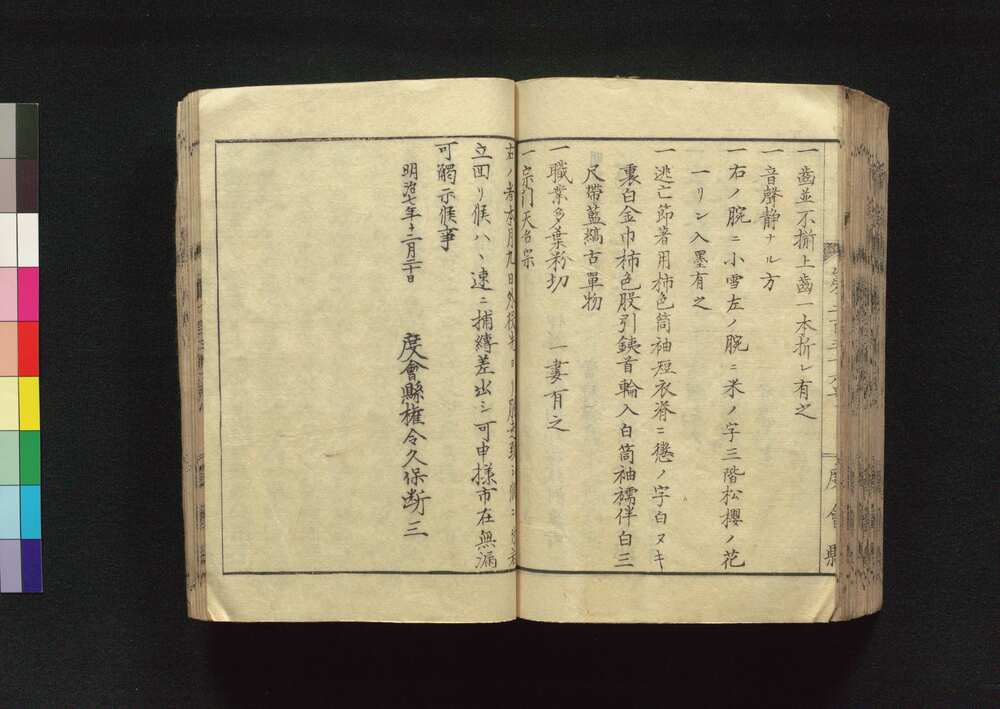 一 齒並不揃上齒一本折レ有之
一 音聲静ナル方
一 右ノ腕ニ小雪左ノ腕ニ米ノ字三階松櫻ノ花
一リン入墨有之
一 逃亡節著用柿色筒袖短衣脊ニ懲ノ字白ヌキ
裏白金巾柿色股引銕首輪入白筒袖襦伴白三
尺帶藍縞古單物
一 職業多葉粉切 一妻有之
一 宗門天台宗
右ノ者本月九日外
立回リ候ハヽ速ニ捕縛差出シ可申樣市在無漏
可觸示候事
明治七年十二月二十日
度會縣權令久保断三
度會縣